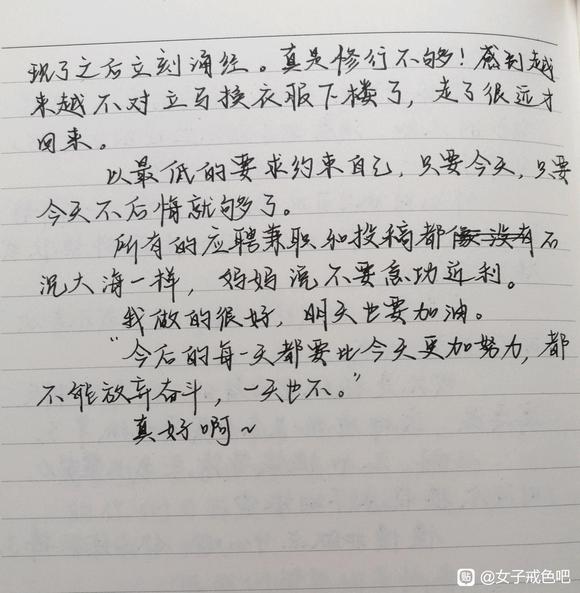 现了之后立刻诵经。真是修行不够！感到越
来越不对立马换衣服下楼了，走了很远才
回来。
以最低的要求约束自己，只要今天，只要
今天不后悔就够了。
所有的应聘兼职和投稿都像没有石
沉大海一样，妈妈说不要急功近利。
我做的很好，明天也要加油。
“今后的每一天都要比今天更加努力，都
不能放弃奋斗，一天也不。”
真好啊～
贴 @女子戒色吧